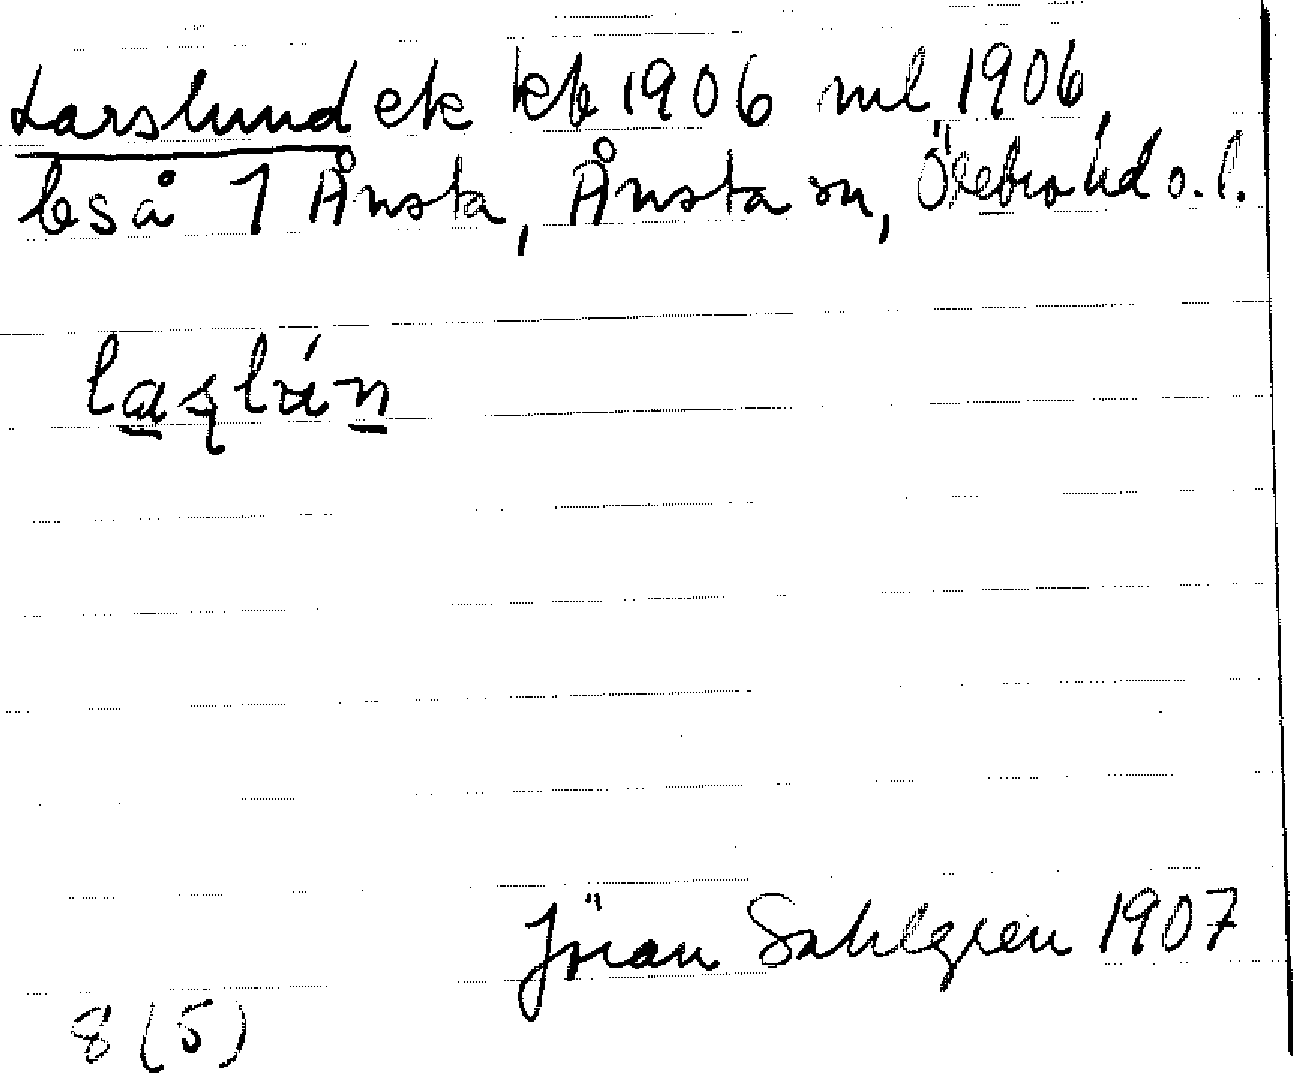 Larslund ek kb 1906 ml 1906
bså 1 Ånsta, Ånsta sn, Örebro hd o. l.
Jöran Sahlgren 1907
8 (5)